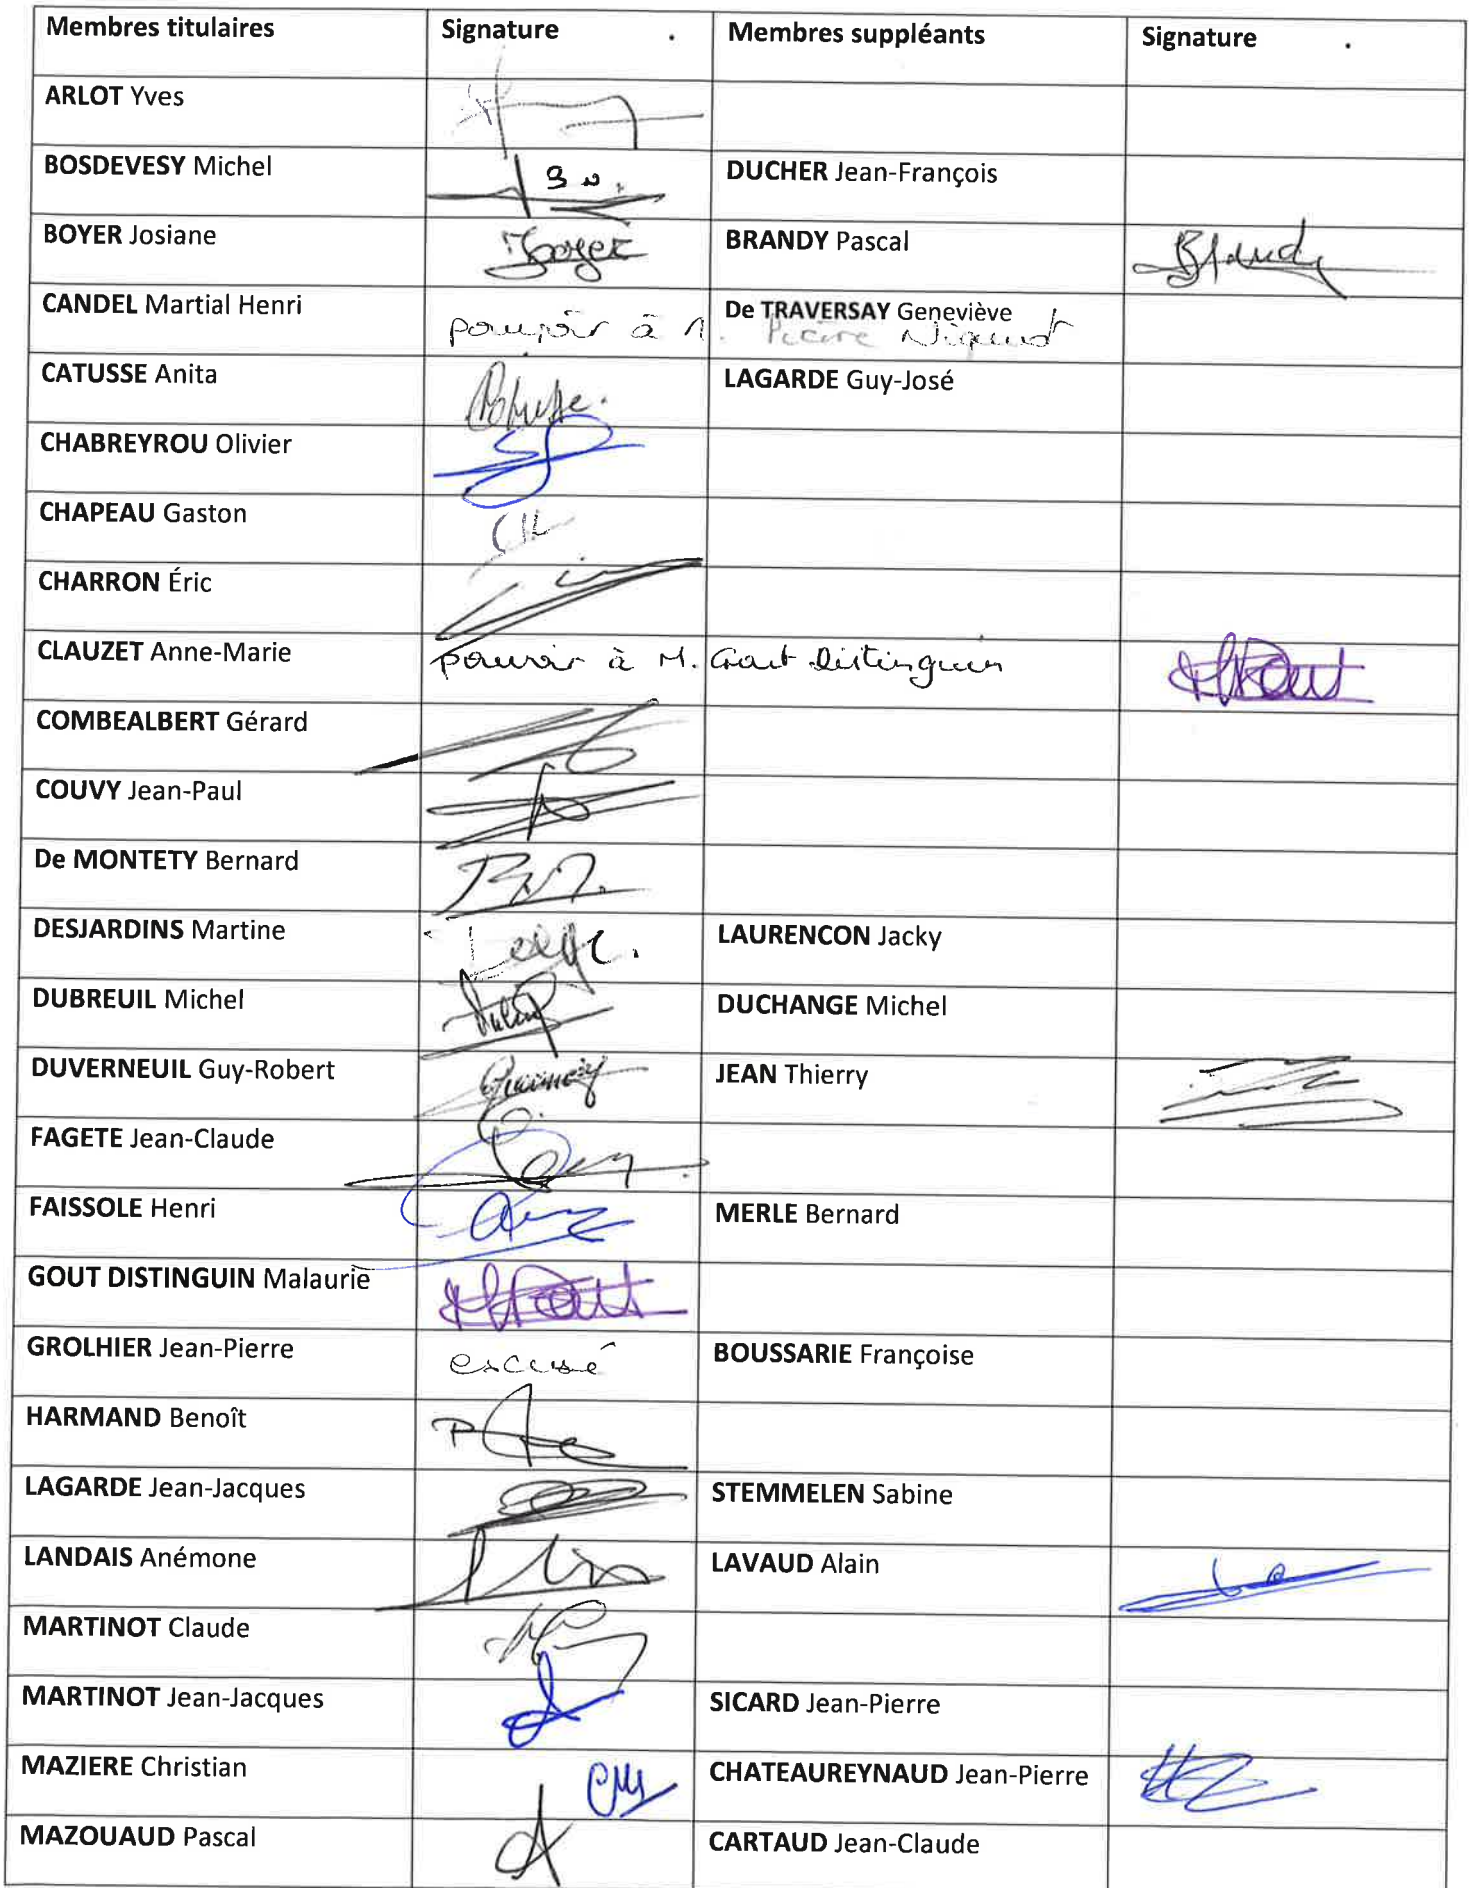 Membres titulaires Signature . Membres suppléants Signature .
ARLOT Yves
BOSDEVESY Michel DUCHER Jean-François
BOYER Josiane BRANDY Pascal
CANDEL Martial Henri pouvoir à M. Pierre De TRAVERSAY Geneviève
CATUSSE Anita LAGARDE Guy-José
CHABREYROU Olivier
CHAPEAU Gaston
CHARRON Éric
CLAUZET Anne-Marie pouvoir à M. Gout Distinguin
COMBEALBERT Gérard
COUVY Jean-Paul
De MONTETY Bernard
DESJARDINS Martine LAURENCON Jacky
DUBREUIL Michel DUCHANGE Michel
DUVERNEUIL Guy-Robert JEAN Thierry
FAGETE Jean-Claude
FAISSOLE Henri MERLE Bernard
GOUT DISTINGUIN Malaurie
GROLHIER Jean-Pierre excusé BOUSSARIE Françoise
HARMAND Benoît
LAGARDE Jean-Jacques STEMMELEN Sabine
LANDAIS Anémone LAVAUD Alain
MARTINOT Claude
MARTINOT Jean-Jacques SICARD Jean-Pierre
MAZIERE Christian CHATEAUREYNAUD Jean-Pierre
MAZOUAUD Pascal CARTAUD Jean-Claude